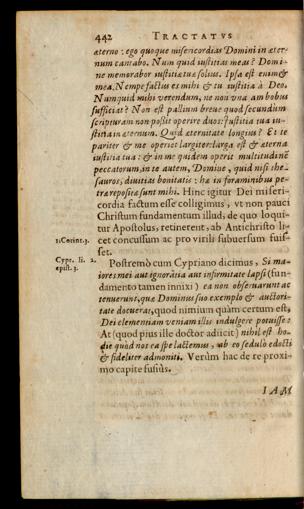 442 TRACTATVS
æterno: ego quoque misericordias Domini in æter-
num cantabo. Num quid iustitias meas? Domi-
ne memorabor iustitiæ tuæ solius. Ipsa est enim &
mea. Nempe factus es mihi & tu iustitia à Deo.
Numquid mihi verendum, ne non vna ambobus
sufficiat? Non est pallium breue quod secundum
scripturam non possit operire duos: Iustitia tua iu-
stitia in æternum. Quid æternitate longius? Et te
pariter & me operiet largiter: larga est & æterna
iustitia tua: & in me quidem operit multitudinẽ
peccatorum, in te autem, Domine, quid nisi the-
sauros, diuitias bonitatis: hæ in foraminibus pe-
træ repositæ sunt mihi. Hinc igitur Dei miseri-
cordia factum esse colligimus, vt non pauci
Christum fundamentum illud, de quo loqui-
tur Apostolus, retinerent, ab Antichristo li-
1. Corint. 3. cet concussum ac pro virili subuersum fuis-
set.
Cypr. li. 2. Postremò cum Cypriano dicimus, Si ma-
epist. 3. iores mei aut ignorãtia aut infirmitate lapsi (fun-
damento tamen innixi) ea non obseruarunt ac
tenuerunt, quæ Dominus suo exemplo & auctori-
tate docuerat, quod nimium quàm certum est,
Dei clementiam veniam illis indulgere potuisse:
At (quod pius ille doctor adiicit) nihil est ho-
die quòd nos ea spe lactemus, ab eo sedulò edocti
& fideliter admoniti. Verùm hac de re proxi-
mo capite fusiùs.
IAM